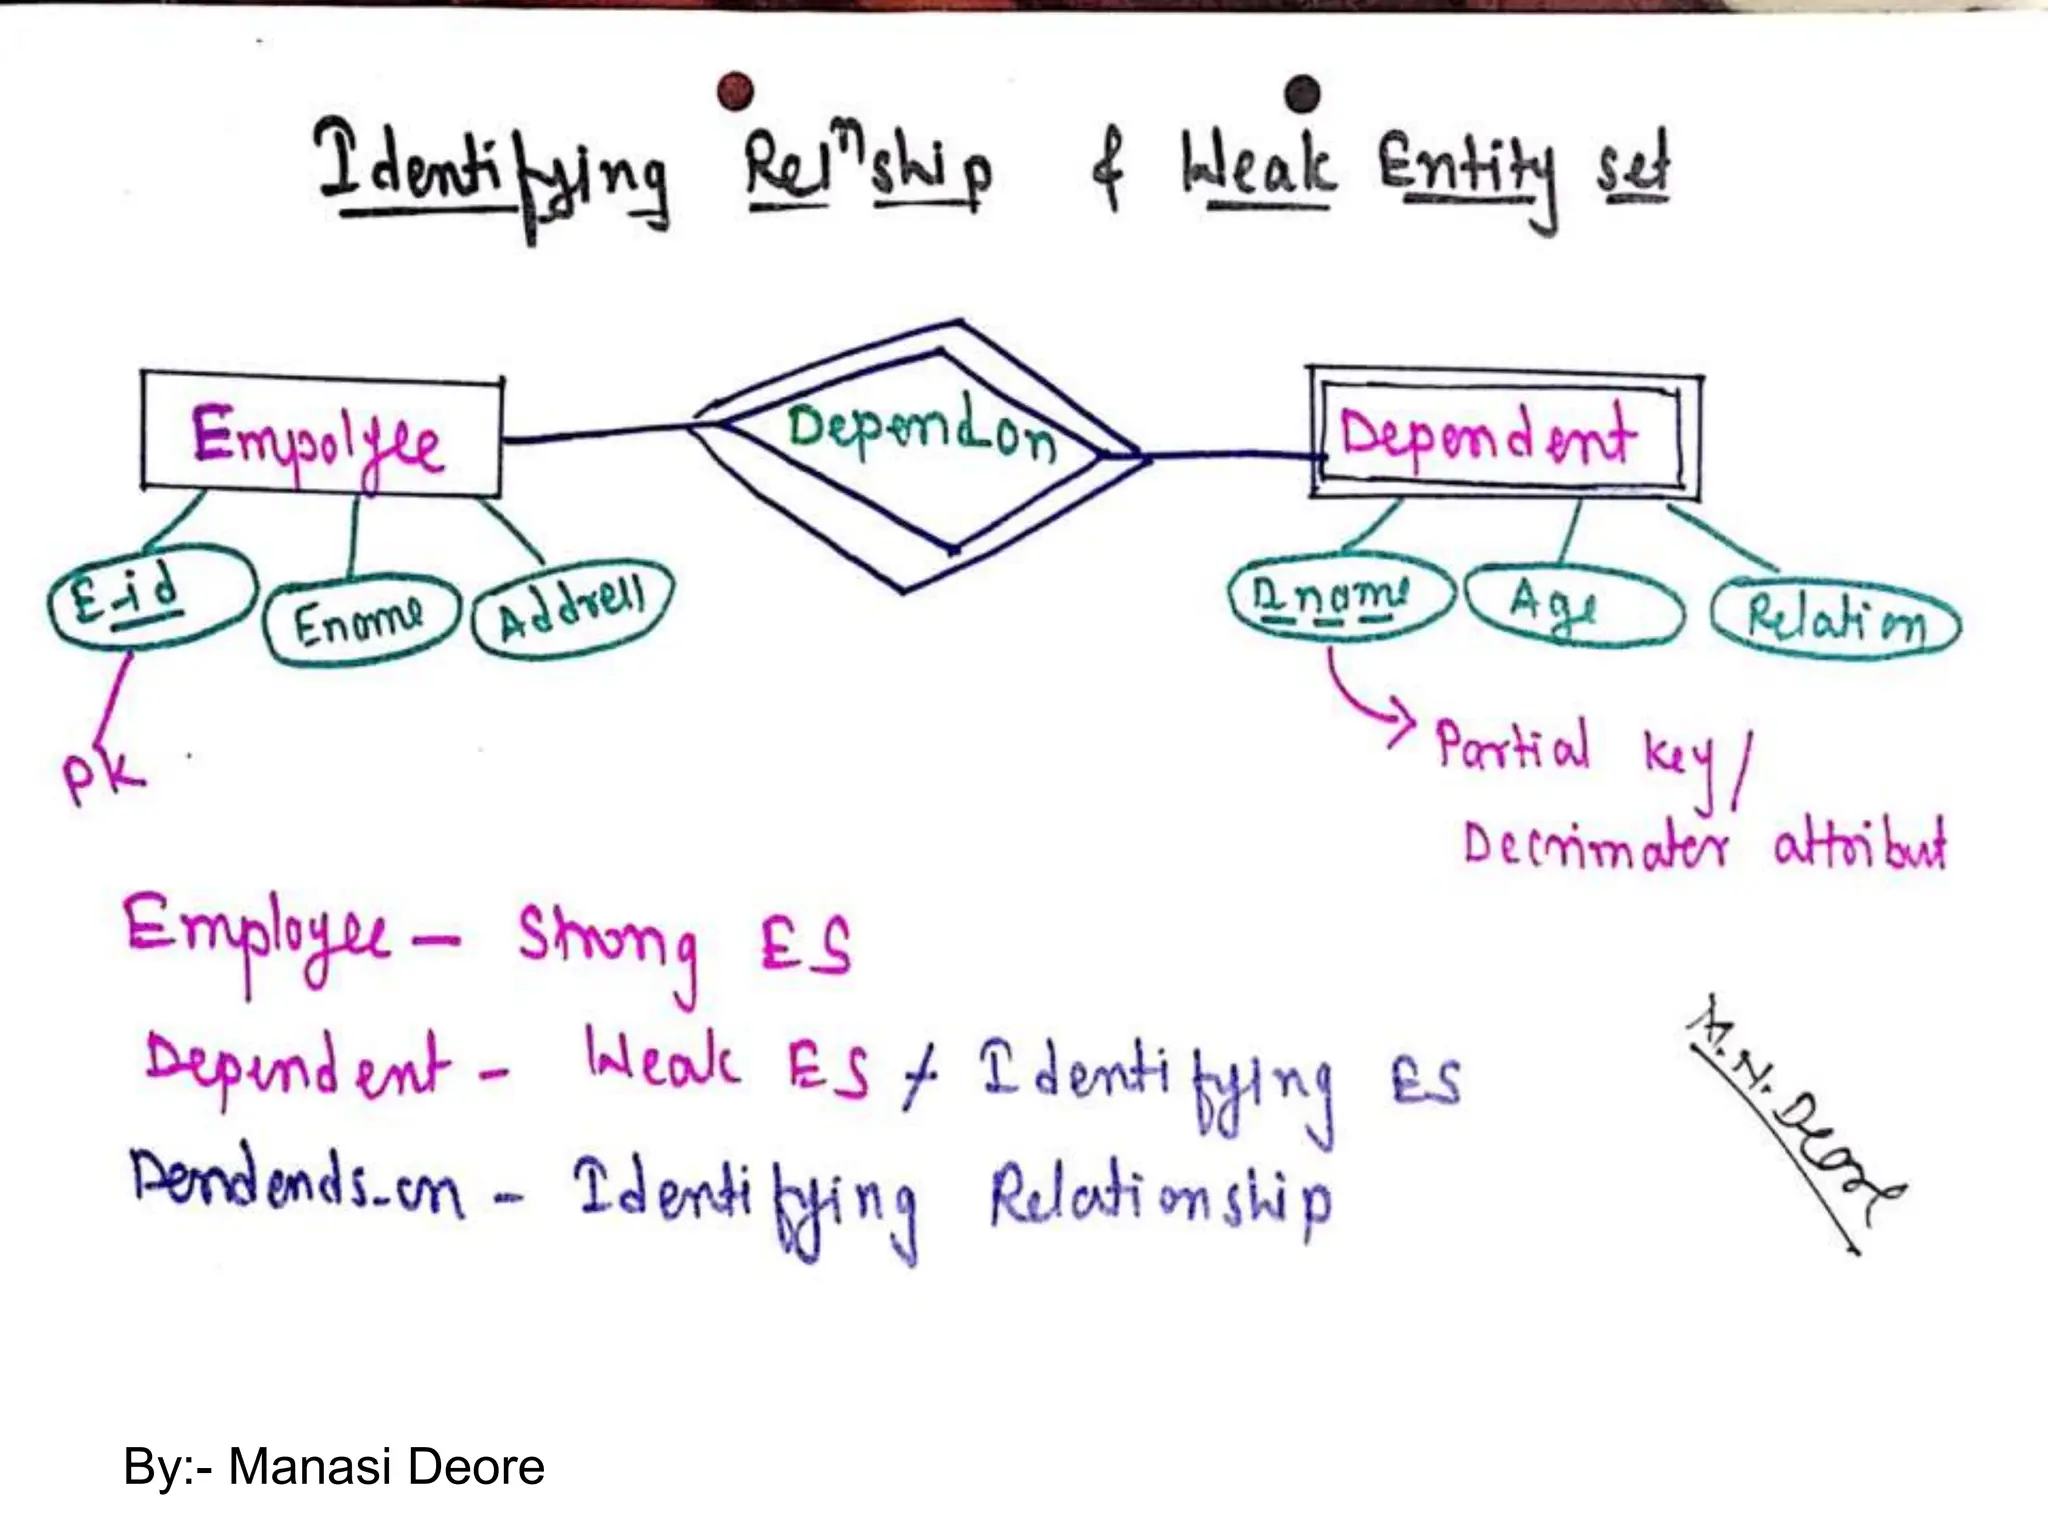 Identifying Relⁿship & Weak Entity set
Empolyee
Dependon
Dependent
E-id
Ename
Address
Dname
Age
Relation
PK
Partial key/
Decrimater attribut
Employee - Strong ES
Dependent - Weak ES / Identifying ES
Dendends-on - Identifying Relationship
M.N. Deore
By:- Manasi Deore